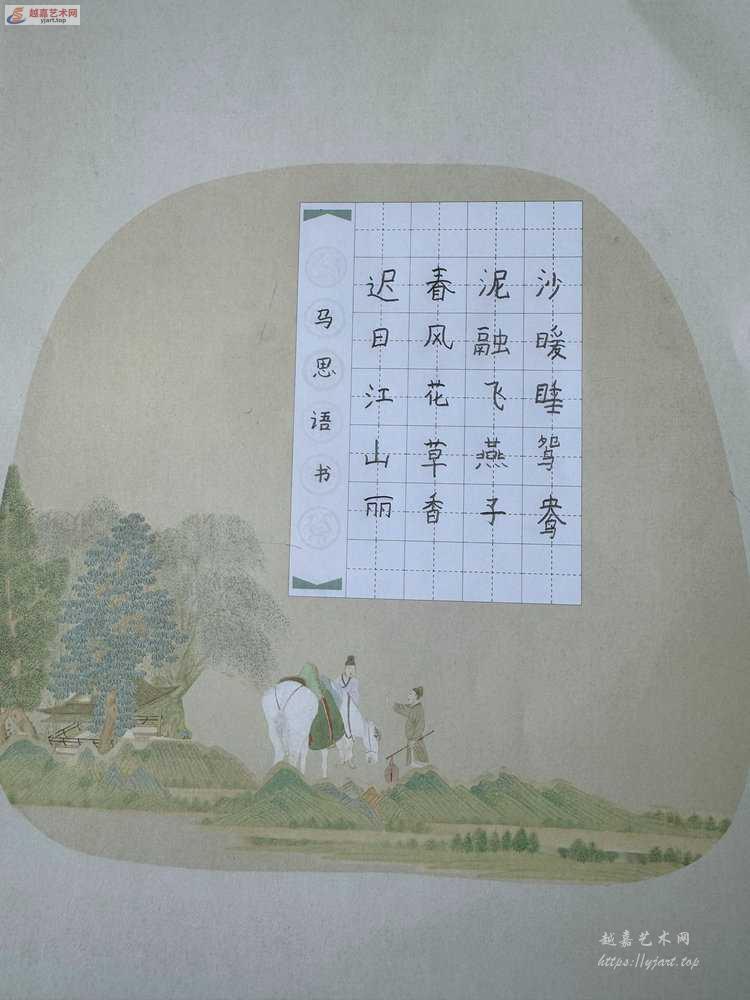 越嘉艺术网
yjart.top
迟日江山丽
春风花草香
泥融飞燕子
沙暖睡鸳鸯
马思语书
越嘉艺术网
https://yjart.top